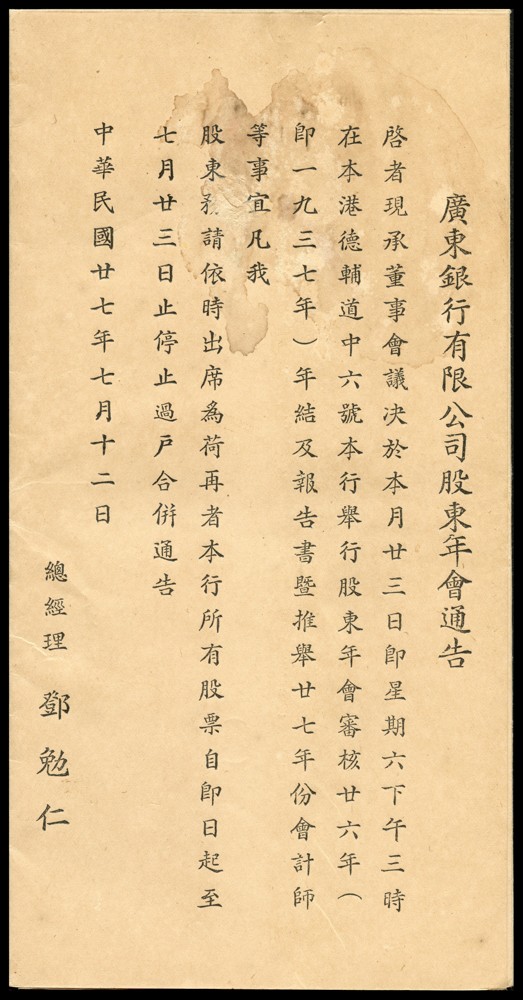 廣東銀行有限公司股東年會通告
啓者現承董事會議决於本月廿三日卽星期六下午三時
在本港德輔道中六號本行舉行股東年會審核廿六年（
卽一九三七年）年結及報告書曁推舉廿七年份會計師
等事宜凡我
股東務請依時出席爲荷再者本行所有股票自卽日起至
七月廿三日止停止過戶合併通告
中華民國廿七年七月十二日
總經理 鄧勉仁